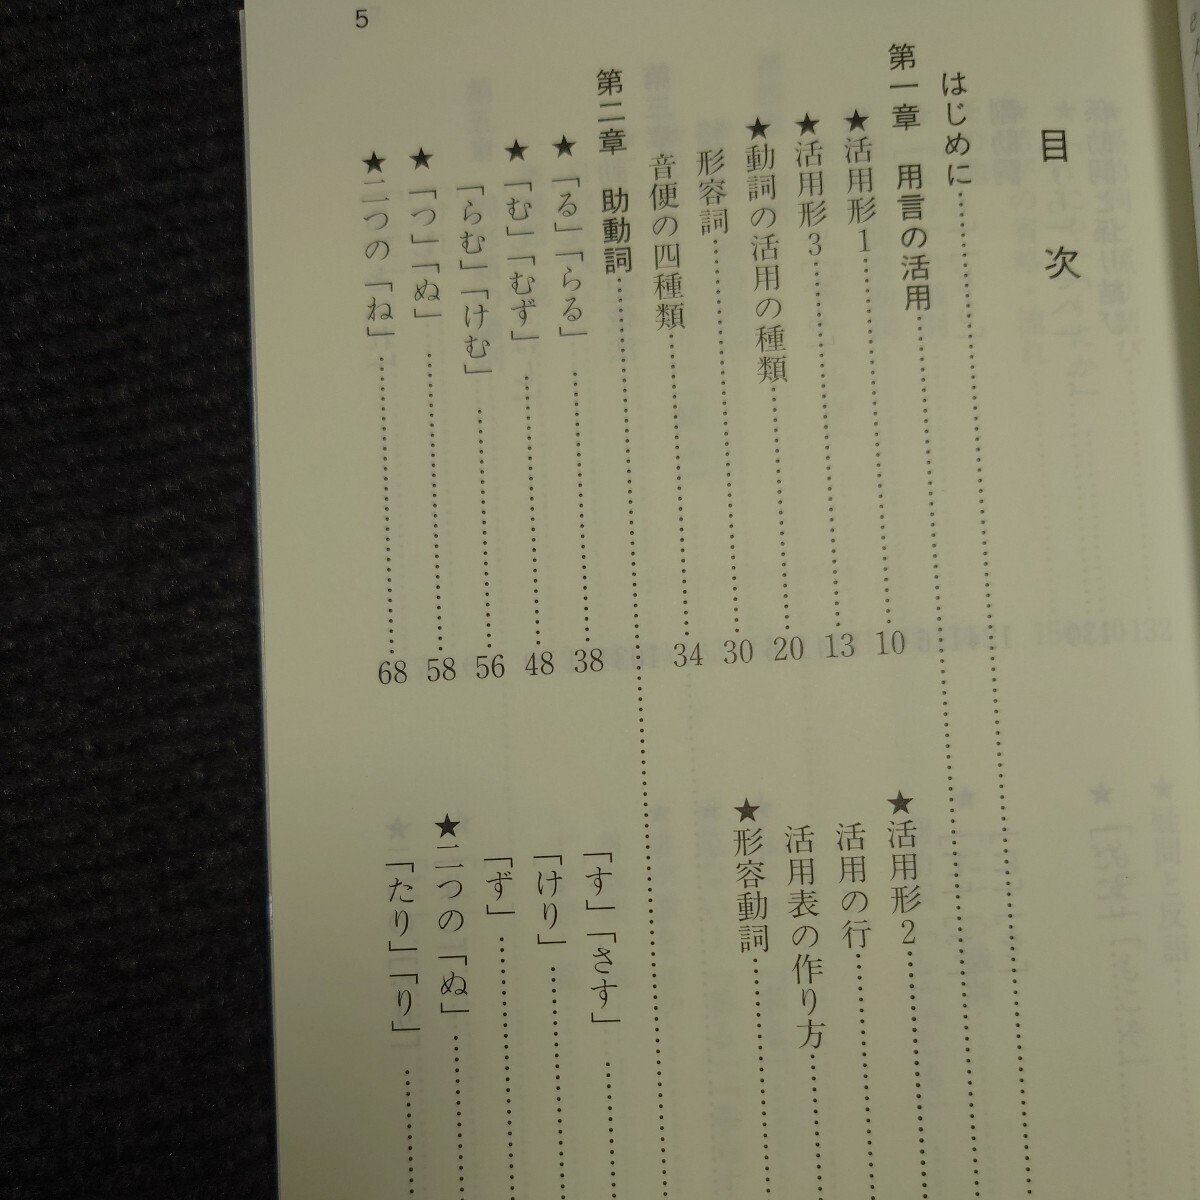 目次
はじめに
第一章 用言の活用
★活用形1 10
★活用形2
★活用形3 13
活用の行
★動詞の活用の種類 20
活用表の作り方
形容詞 30
★形容動詞
音便の四種類 34
第二章 助動詞
★「る」「らる」 38
「す」「さす」
★「む」「むず」 48
「けり」
「らむ」「けむ」 56
「ず」
★「つ」「ぬ」 58
★二つの「ぬ」
★二つの「ね」 68
「たり」「り」
5